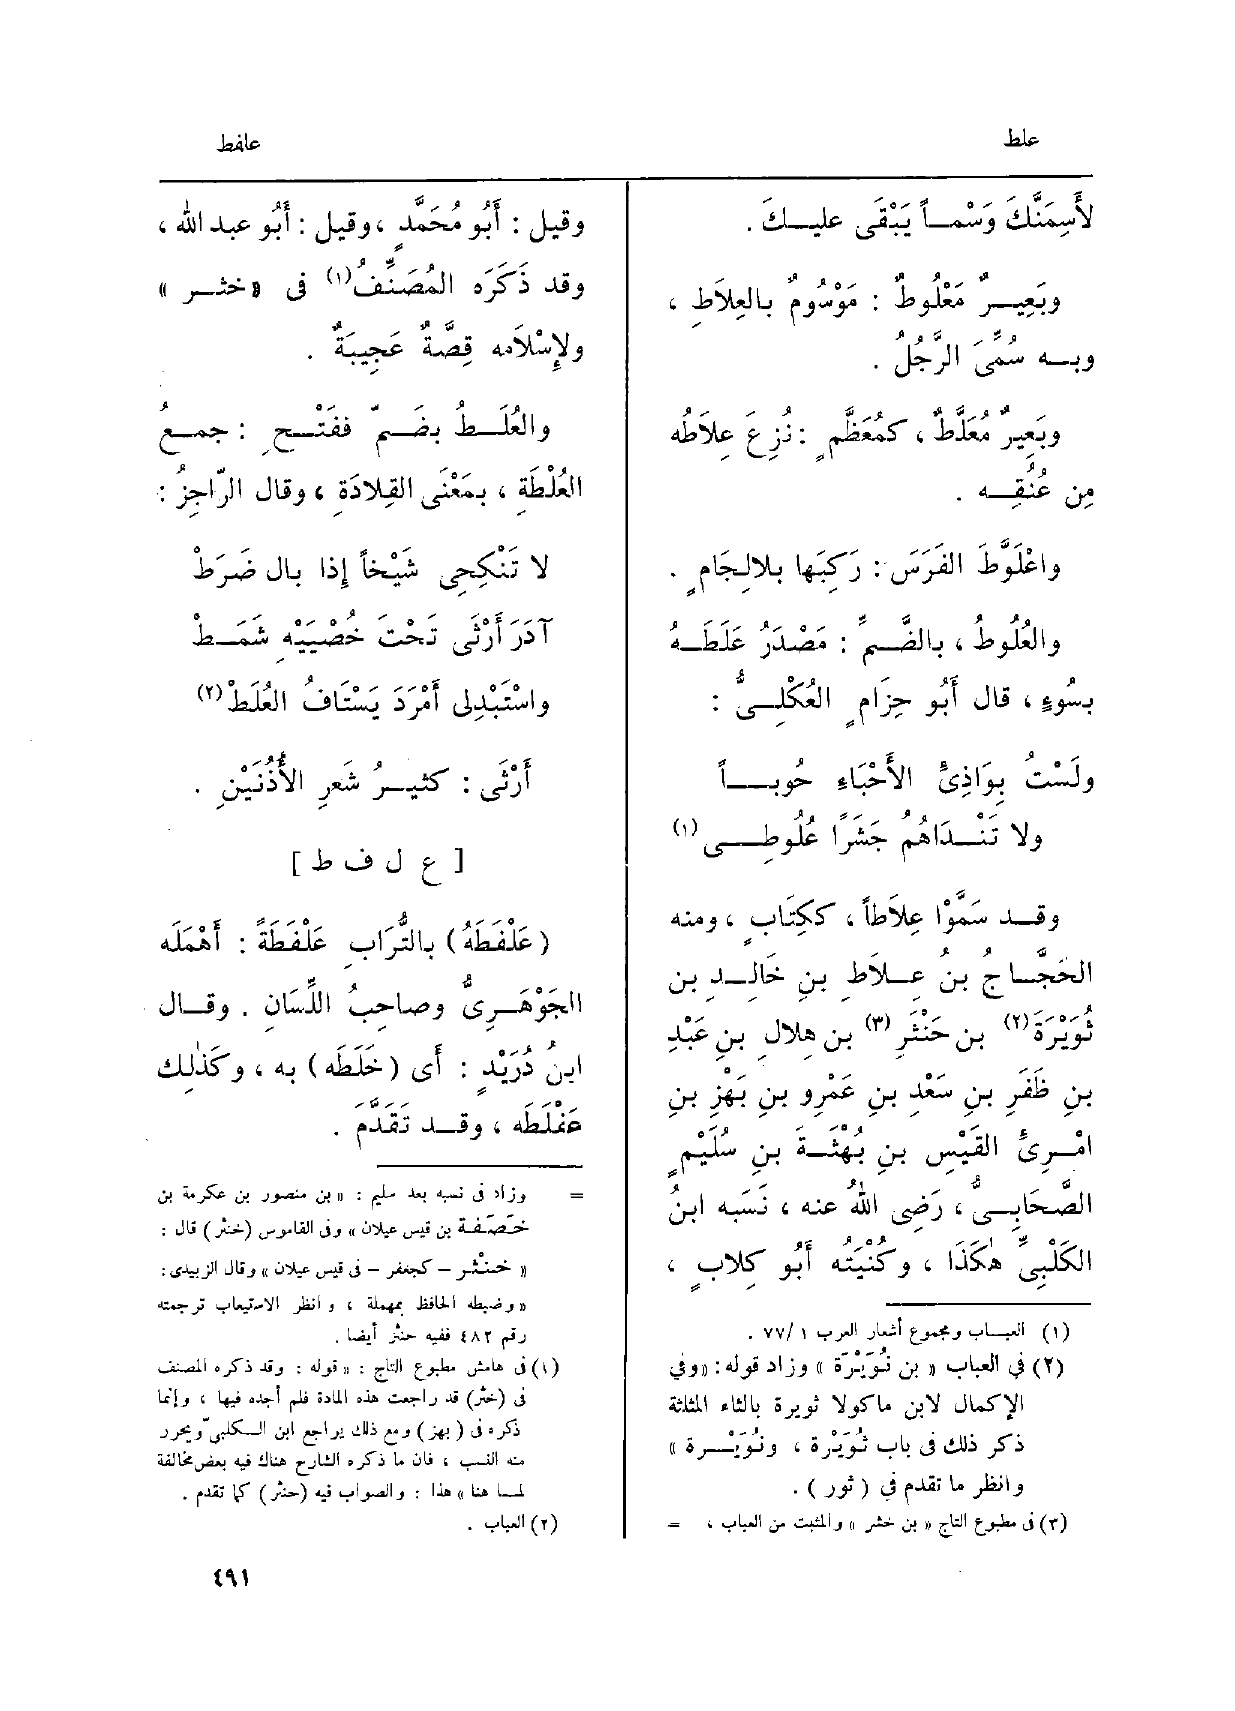 علط
علفط
لأَسِمَنَّكَ وَسْمـاً يَبْقَى عليـكَ .
وبَعِيـرٌ مَعْلُوطٌ : مَوْسُومٌ بالعِلاَطِ ،
وبـه سُمِّىَ الرَّجُلُ .
وبَعِيرٌ مُعَلَّطٌ ، كمُعَظَّمٍ : نُزِعَ عِلاَطُه
مِن عُنُقِـه .
واعْلَوَّطَ الفَرَسَ : رَكِبَها بلالِجَامٍ .
والعُلُوطُ ، بالضَّـمِّ : مَصْدَرُ عَلَطَـهُ
بسُوءٍ ، قال أَبُو حِزَامٍ العُكْلِـىُّ :
ولَسْتُ بِوَاذِئِ الأَحْبَاءِ حُوبـاً
ولا تَنْـدَاهُم جَشْرًا عُلُوطِـى(١)
وقـد سَمَّوْا عِلاَطاً ، ككِتَابٍ ، ومنه
الحَجَّـاجُ بنُ عِـلاَطِ بنِ خَالِـد بن
ثُوَيْرَةَ(٢) بن حَنْثَرِ(٣) بن هِلالِ بنِ عَبْدِ
بنِ ظَفَرِ بنِ سَعْدِ بنِ عَمْرِو بنِ بَهْزِ بنِ
امْـرِئِ القَيْسِ بنِ بُهْثَـةَ بنِ سُلَيْمٍ
الصَّحَابِـىُّ ، رَضِىَ اللهُ عنه ، نَسَبَه ابنُ
الكَلْبِىِّ هٰكَذَا ، وكُنْيَتُه أَبُو كِلابٍ ،
(١) العبـاب ومجموع أشعار العرب ١ /٧٧ .
(٢) في العباب « بن نُوَيْرَة » وزاد قوله : «وفي
الإكمال لابن ماكولا ثويرة بالثاء المثلثة
ذكر ذلك فى باب ثُوَيْرة ، ونُوَيْـرة »
وانظر ما تقدم في ( ثور ) .
(٣) فى مطبوع التاج « بن خثر » والمثبت من العباب ، =
وقيل : أَبُو مُحَمَّدٍ ،وقيل : أَبُو عبد الله ،
وقد ذَكَرَه المُصَنِّفُ(١) فى «خثـر »
ولإِسْلَامه قِصَّةٌ عَجِيبَةٌ .
والعُلَـطُ بضَـمّ ففَتْـحٍ : جمـعُ
العُلْطَةِ ، بمَعْنَى القِلادَةِ ، وقال الرّاجِزُ :
لا تَنْكِحِى شَيْخاً إذا بال ضَرَطْ
آدَرَ أَرْثَى تَحْتَ خُصْيَيْه شَمَـطْ
واسْتَبْدِلِى أَمْرَدَ يَسْتَافُ العُلَطْ(٢)
أَرْثَى : كثيـرُ شَعرِ الأُذُنَيْنِ .
[ ع ل ف ط ]
(عَلْفَطَهُ) بالتُّرَابِ عَلْفَطَةً : أَهْمَلَه
الجَوْهَـرِىُّ وصاحِبُ اللِّسَانِ . وقـال
ابنُ دُرَيْدٍ : أَى (خَلَطَه) به ، وكَذٰلك
عَفْلَطَه ، وقـد تَقَدَّمَ .
= وزاد فى نسبه بعد سليم : « بن منصور بن عكرمة بن
خَصَفَة بن قيس عيلان » وفى القاموس (خنثر) قال :
« خَنْثَـر - كجعفر - فى قيس عيلان » وقال الزبيدى :
« وضبطه الحافظ بمهملة ، وانظر الاستيعاب ترجمته
رقم ٤٨٢ ففيه حنثر أيضا .
(١) فى هامش مطبوع التاج : « قوله : وقد ذكره المصنف
فى (خثر) قد راجعت هذه المادة فلم أجده فيها ، وإنما
ذكره فى ( بهز) ومع ذلك يراجع ابن الـكلبىّ ويحرر
منه النسب ، فان ما ذكره الشارح هناك فيه بعض مخالفة
لمـا هنا » هذا : والصواب فيه (حنثر) كما تقدم .
(٢) العباب .
٤٩١